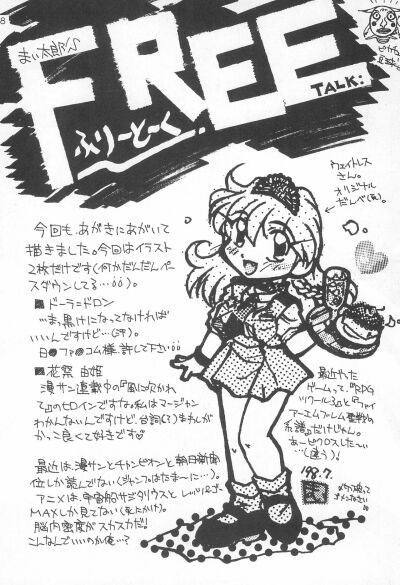 8
まい太郎の
FREE
TALK:
ふりーとーく
ウェイトレス
さん。
オリジナル
だんべ(笑)。
今回も、あがきにあがいて
描きました。今回はイラスト
2枚だけです(何かだんだんペー
スダウンしてる…)。
■ドーラ=ドロン
…ま、黒けになってなければ
いいんですけど…(汗)。
日●ファ●コム様、許して下さい
■花祭 由姫
漫サン連載中の『風に吹かれ
て』のヒロインですな。私はマージャン
わかんないんですけど、台詞(?)まわしが
かっこ良くて好きです
最近は漫サンとチャンピオンと朝日新聞
位しか読んでない(ジャンプはたまーに…)。
アニメは、宇宙船サジタリウスとレッツ&ゴー
MAXしか見てない(見たかけ)。
脳内密度がスカスカだ!
こんなんでいいのか俺…?
最近やった
ゲームって、『RPG
ツクール3』と『ファイ
アーエムブレム聖戦の
系譜』だけじゃん。
あーピクロスした〜い
…(違う)!
'98.7.
まい